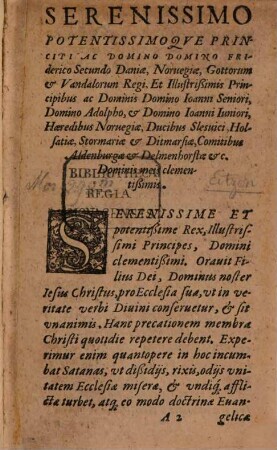 SERENISSIMO
POTENTISSIMOQVE PRIN-
CIPI AC DOMINO DOMINO FRI-
derico Secundo Daniæ, Noruegiæ, Gottorum
& Vandalorum Regi. Et Illustrißimis Prin-
cipibus ac Dominis Domino Ioanni Seniori,
Domino Adolpho, & Domino Ioanni Iuniori,
Hæredibus Noruegiæ, Ducibus Slesuici, Hol-
satiæ, Stormariæ & Ditmarsiæ, Comitibus
Aldenburgæ & Delmenhorstiæ &c.
Dominis meis clemen-
tißimis.
BIBLIOTHECA
REGIA
SERENISSIME ET
potentißime Rex, Illustris-
simi Principes, Domini
clementißimi. Orauit Fi-
lius Dei, Dominus noster
Iesus Christus, pro Ecclesia sua, vt in ve-
ritate verbi Diuini conseruetur, & sit
vnanimis, Hanc precationem membra
Christi quotidie repetere debent. Expe-
rimur enim quantopere in hoc incum-
bat Satanas, vt dißidijs, rixis, odijs vni-
tatem Ecclesiæ miseræ, & vndiq; affli-
ctæ turbet, atq; eo modo doctrinæ Euan-
A 2 gelicæ